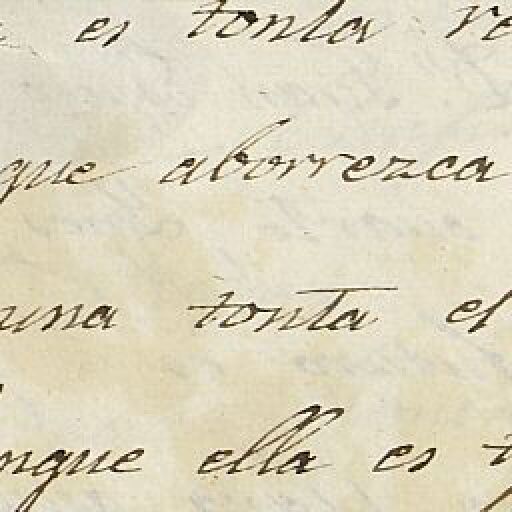 es tonta
que aborrezca
una tonta el
ella es